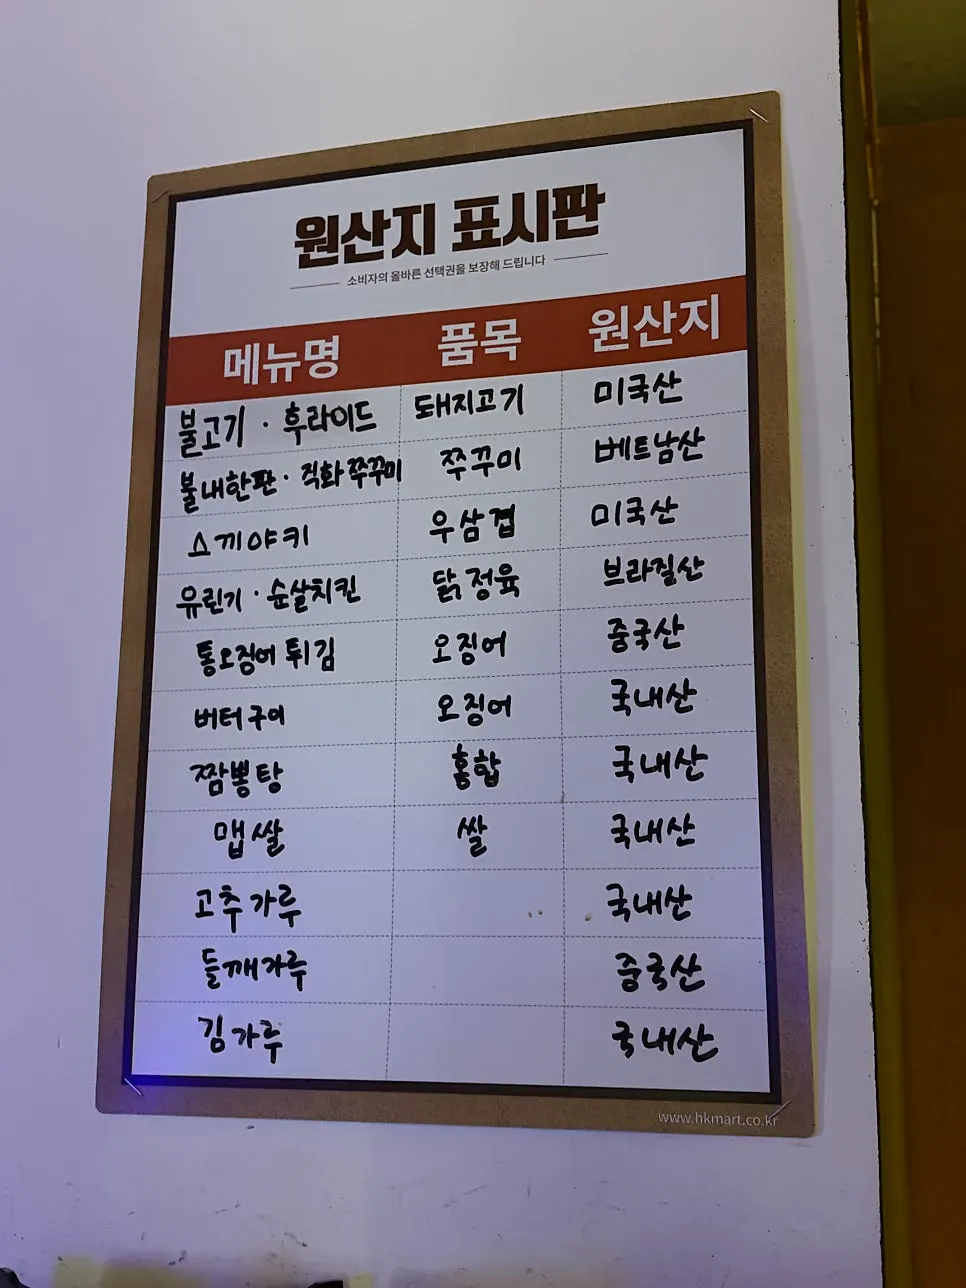 원산지 표시판
소비자의 올바른 선택권을 보장해 드립니다
메뉴명 품목 원산지
불고기 · 후라이드 돼지고기 미국산
불내한판 · 직화쭈꾸미 쭈꾸미 베트남산
스끼야키 우삼겹 미국산
유린기 · 순살치킨 닭정육 브라질산
통오징어 튀김 오징어 중국산
버터구이 오징어 국내산
짬뽕탕 홍합 국내산
맵쌀 쌀 국내산
고추가루 국내산
들깨가루 중국산
김가루 국내산
www.hkmart.co.kr